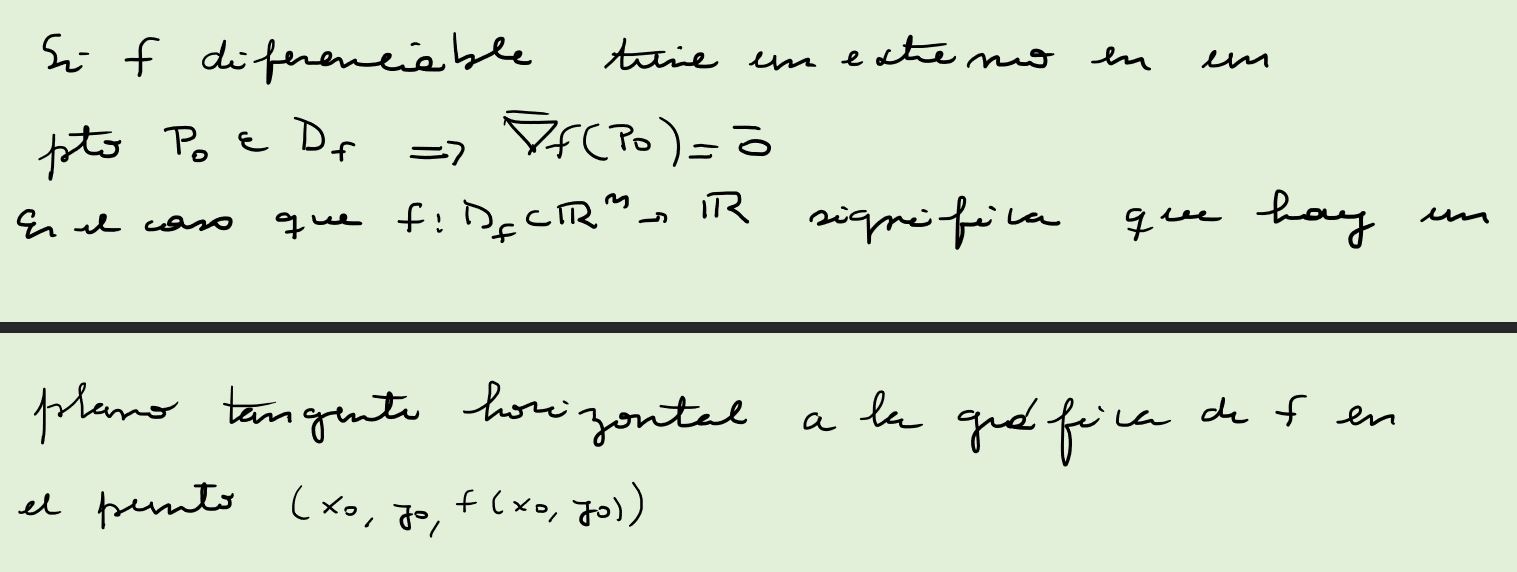 Si f diferenciable tiene un extremo en un
pto P₀ ∈ D_f => ∇̅f(P₀) = 0̅
En el caso que f: D_f ⊂ ℝⁿ → ℝ significa que hay un
plano tangente horizontal a la gráfica de f en
el punto (x₀, y₀, f(x₀, y₀))